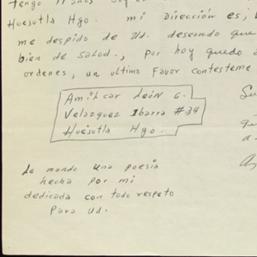 tengo
Huejutla Hgo. mi Dirección es,
me despido de Ud. deseando que
bien de salud., Por hoy quedo
ordenes, un ultimo Favor contesteme
Amilcar León G.
Velazquez Ibarra #34
Huejutla Hgo.
Le mando una poesia
hecha por mi
dedicada con todo respeto
Para Ud.